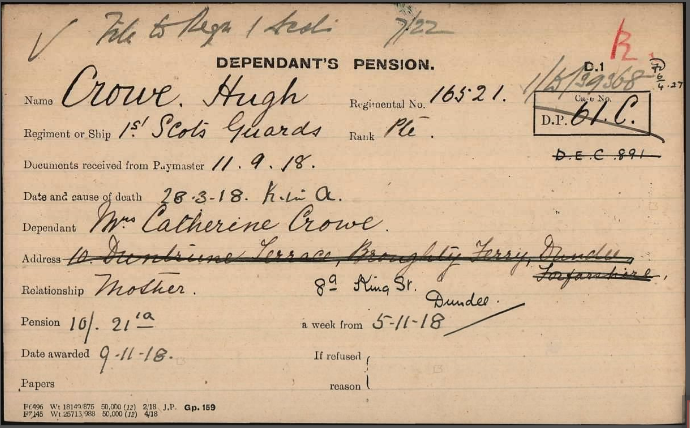 File to Regn 1 Scots 7/22
R.
DEPENDANT'S PENSION.
D.1
1/5/39368
Name Crowe. Hugh Regimental No. 16521.
Case No.
D.P. 61.C.
Regiment or Ship 1st Scots Guards Rank Pte.
D.E.C. 891
Documents received from Paymaster 11.9.18.
Date and cause of death 28-3-18. K. in A.
Dependant Mrs Catherine Crowe.
Address 10. Duntrune Terrace, Broughty Ferry, Dundee
Forfarshire.
Relationship Mother. 8a King St.
Dundee.
Pension 10/. 21 a week from 5-11-18
Date awarded 9-11-18. If refused
Papers reason
Wt 18149/875 50,000 (12) 2/18 J.P. Gp. 159
Wt 25713/988 50,000 (12) 4/18